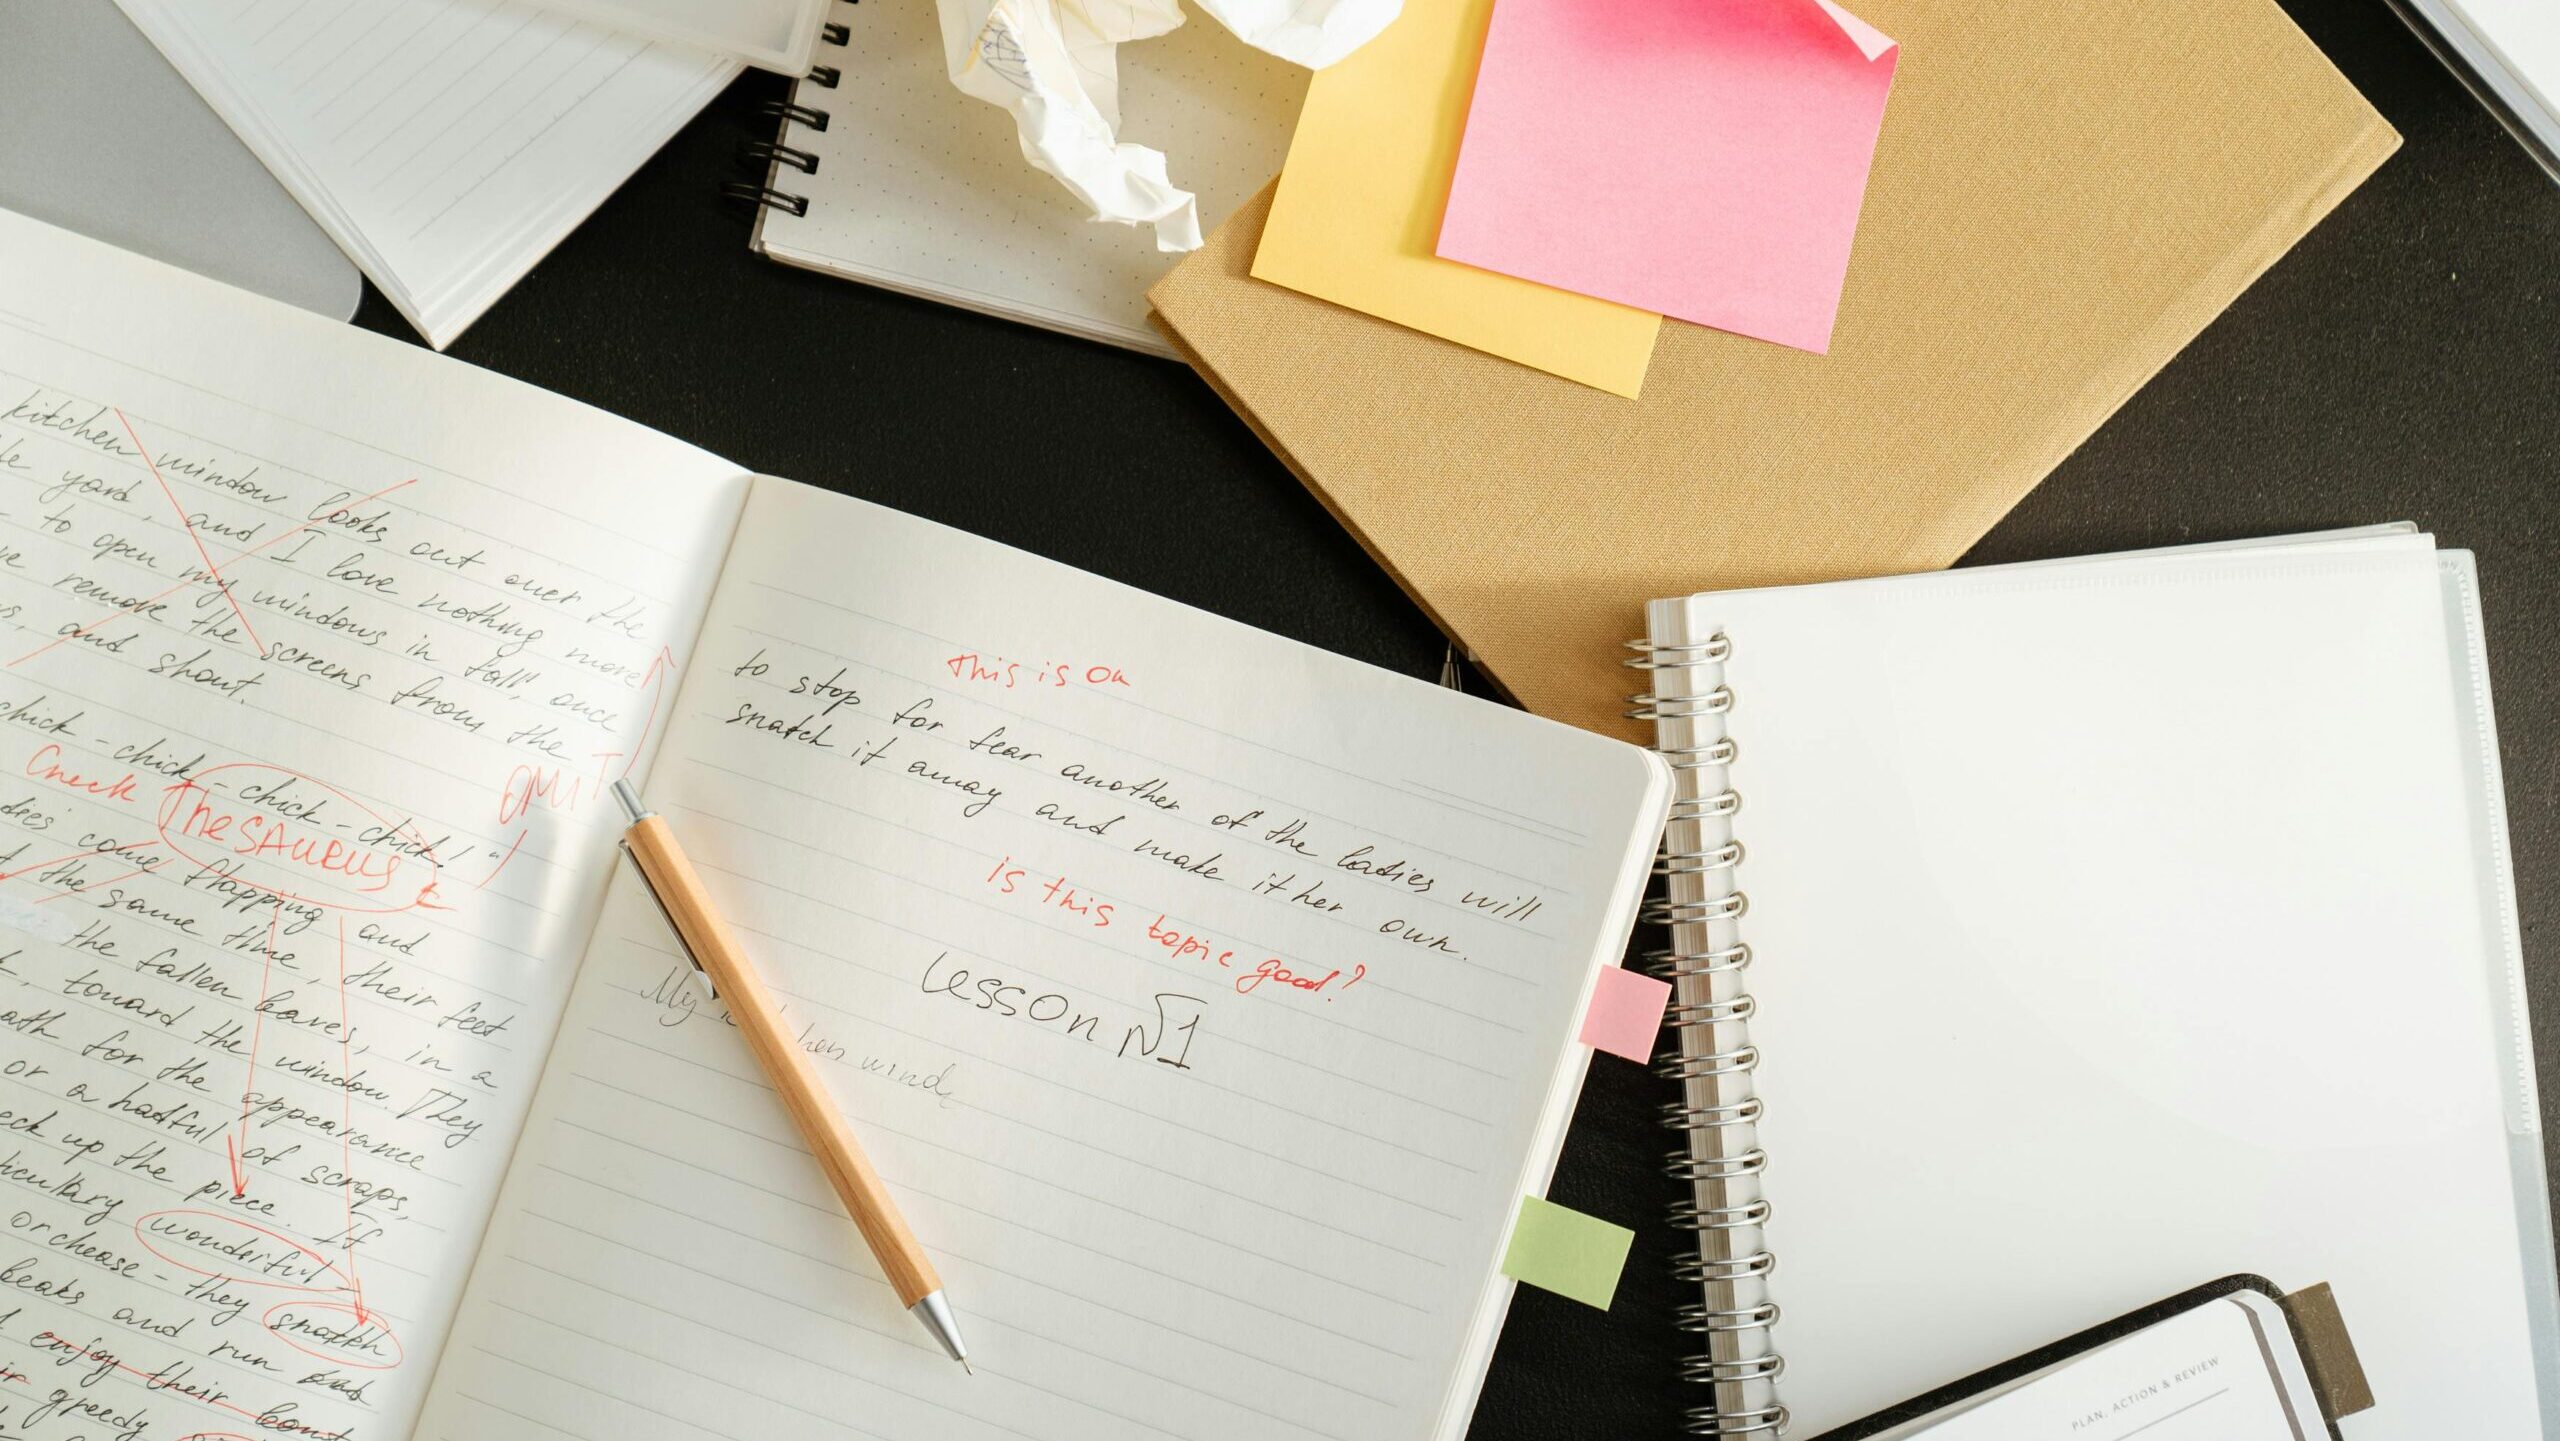 kitchen window looks out over the
yard, and I love nothing more
- to open my windows in fall, once
remove the screens from the
and shout.
OMIT
chick-chick-chick-chick!"
Check Thesaurus
come flapping and
the same time, their feet
the fallen leaves, in a
toward the window. They
for the appearance
or a hatful of scraps,
up the piece. If
wonderful -
or chease - they snatkh
beaks and run
enjoy their
greedy
This is ok
to stop for fear another of the ladies will
snatch it away and make it her own.
is this topic good?
Lesson №1
My
PLAN, ACTION & REVIEW